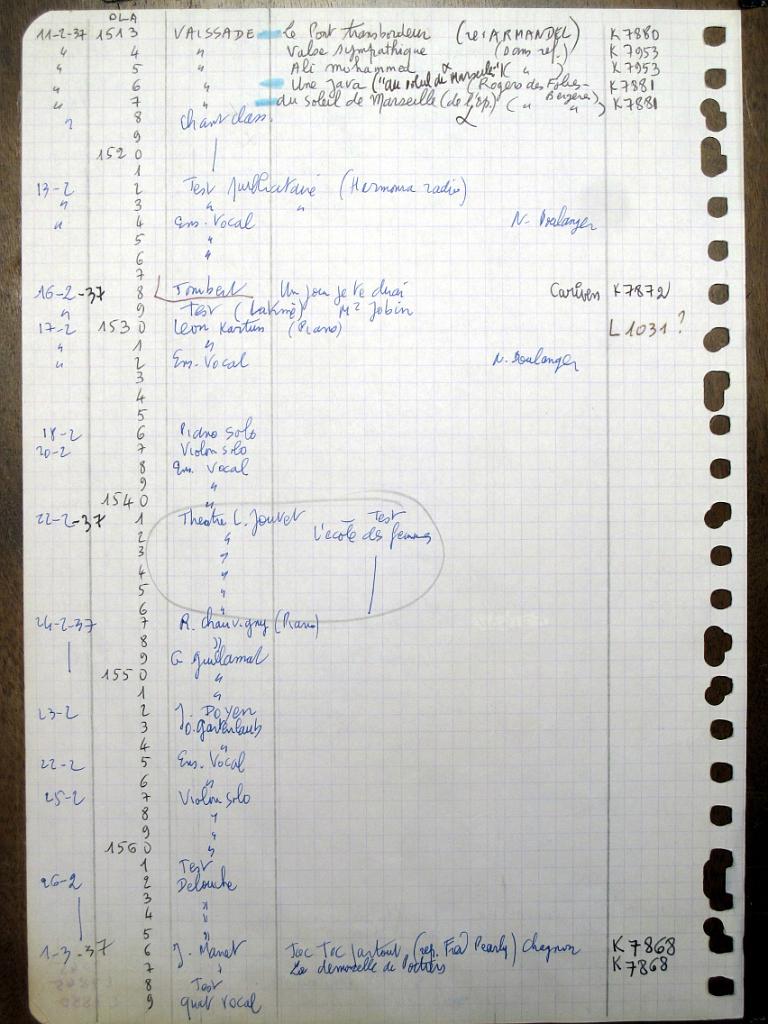 DLA
11-2-37 1513 VAISSADE Le Pont transbordeur (rei ARMANDEL) K7880
" 4 " Valse sympathique (Dans ref.) K7953
" 5 " Ali mohammed ( " ) K7953
" 6 " Une Java ("au soleil de Marseille") (Rogers des Folies- K7881
" 7 " du soleil de Marseille (de l'Ep) ( " " Bergères) K7881
" 8 chant class.
9
152 0
1
13-2 2 Test publicitaire (Harmonia radio)
" 3 " "
" 4 Ens. Vocal N. Boulanger
5 "
6 "
7
16-2-37 8 Tombert Un jour je te dirai Cariven K7872
" 9 Test (Lakmé) Mr Jobin
17-2 153 0 Leon Kartun (Piano) L1031?
" 1 "
" 2 Ens. Vocal N. Boulanger
3
4
5
18-2 6 Piano solo
20-2 7 Violon solo
8 Ens. Vocal
9 "
154 0 "
22-2-37 1 Theatre L. Jouvet Test
2 " L'école des femmes
3 "
4 "
5 "
6 "
24-2-37 7 R. Chauvigny (Piano)
8 "
9 G. Guillamat
155 0 "
1 "
23-2 2 J. DOYEN
3 O. Gartenlaub
4 "
22-2 5 Ens. Vocal
6 "
25-2 7 Violon solo
8 "
9 "
156 0 "
1 Test
26-2 2 Delouche
3 "
4 "
5 "
1-3-37 6 J. Manet Toc Toc partout (rep. Fred Pearly) Chagnon K7868
7 " La demoiselle de Poitiers K7868
8 Test
9 quat vocal